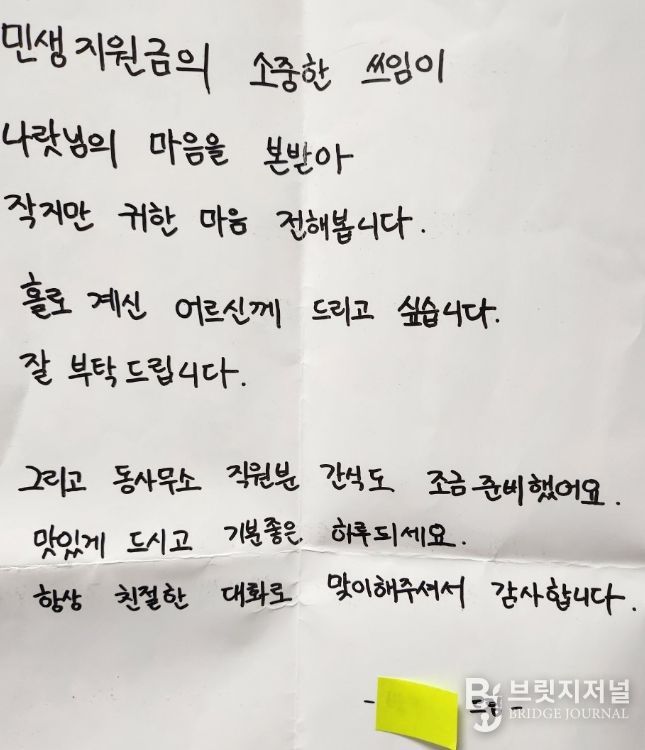 민생지원금의 소중한 쓰임이
나랏님의 마음을 본받아
작지만 귀한 마음 전해봅니다.
홀로 계신 어르신께 드리고 싶습니다.
잘 부탁드립니다.
그리고 동사무소 직원분 간식도 조금 준비했어요.
맛있게 드시고 기분좋은 하루되세요.
항상 친절한 대화로 맞이해주셔서 감사합니다.
- 드림 -
브릿지저널
BRIDGE JOURNAL